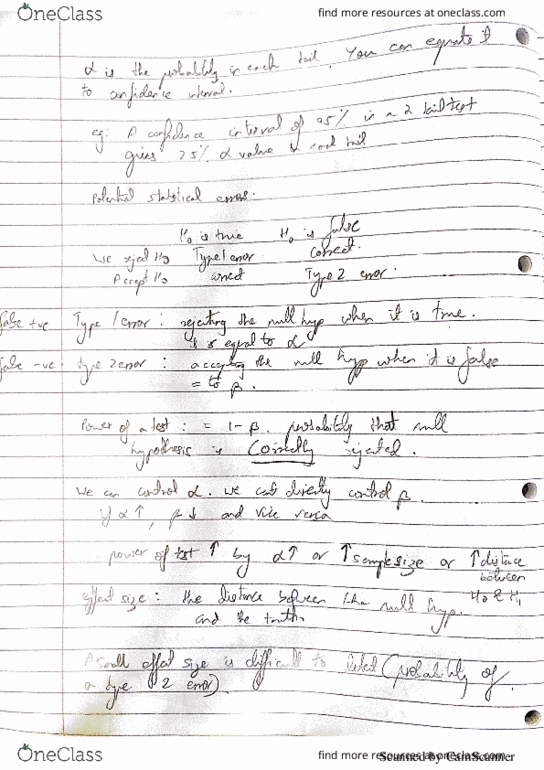 OneClass
find more resources at oneclass.com
α is the probability in each tail. You can equate it
to confidence interval.
eg: A confidence interval of 95% in a 2 tail test
gives 2.5% α value to each tail
Potential statistical errors.
H₀ is true H₀ is false
We reject H₀ Type 1 error correct.
Accept H₀ Type 2 error.
false +ve Type 1 error : rejecting the null hyp when it is true.
is equal to α
false -ve type 2 error : accepting the null hyp when it is false
= to β.
Power of a test : = 1-β. probability that null
hypothesis is Correctly rejected.
We can control α. we can't directly control β.
if α↑, β↓ and vice versa
power of test ↑ by α↑ or ↑ sample size or ↑ distance
between
H₀ & H₁
effect size : the distance between the null hyp.
and the truth.
A small effect size is difficult to (probability of
a type 2 error).
OneClass
find more resources at oneclass.com
Scanned by CamScanner